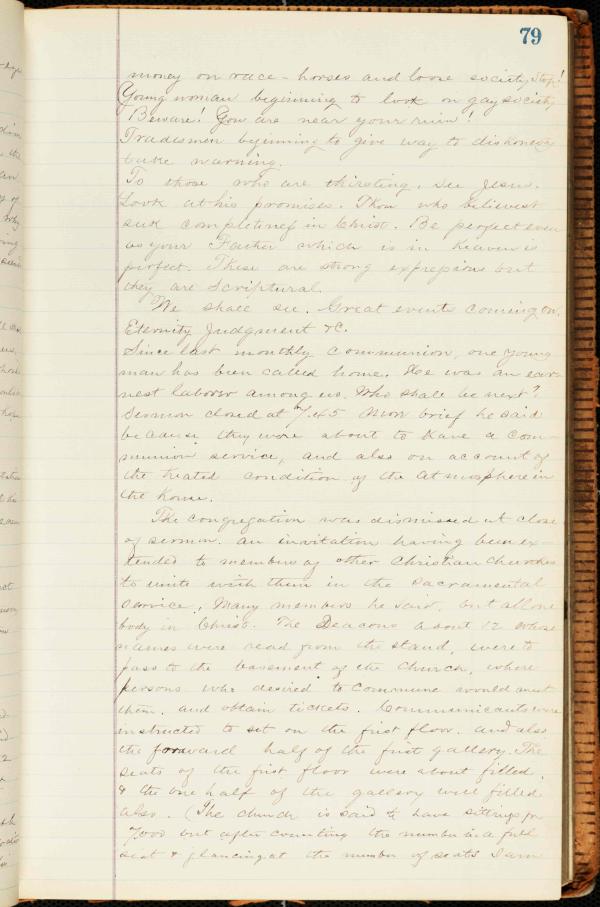 79
money on race-horses and loose society, Stop!
Young woman beginning to look on gay society
Beware! You are near your ruin!
Tradesmen beginning to give way to dishonesty
take warning.
To those who are thirsting, see Jesus.
Look at his promises. Thou who believest
seek completeness in Christ. Be perfect even
as your Father which is in heaven is
perfect. These are strong expressions but
they are Scriptural.
We shall see. Great events coming on.
Eternity, Judgment &c.
Since last monthly communion, one young
man has been called home. He was an ear-
nest laborer among us. Who shall be next?
Sermon closed at 7.45 More brief he said
because, they were about to have a com-
munion service, and also on account of
the heated condition of the atmosphere in
the house.
The congregation was dismissed at close
of sermon. an invitation having been ex-
tended to members of other Christian churches
to unite with them in the sacramental
service, Many members he said, but all one
body in Christ. The Deacons about 12 whose
names were read from the stand, were to
pass to the basement of the church, where
persons who desired to commune would meet
them, and obtain tickets. Communicants were
instructed to sit on the first floor. and also
the forward half of the first gallery. The
seats of the first floor were about filled,
& the one half of the gallery well filled
also. (The church is said to have sittings for
7000 but after counting the number in a full
seat & glancing at the number of seats I am